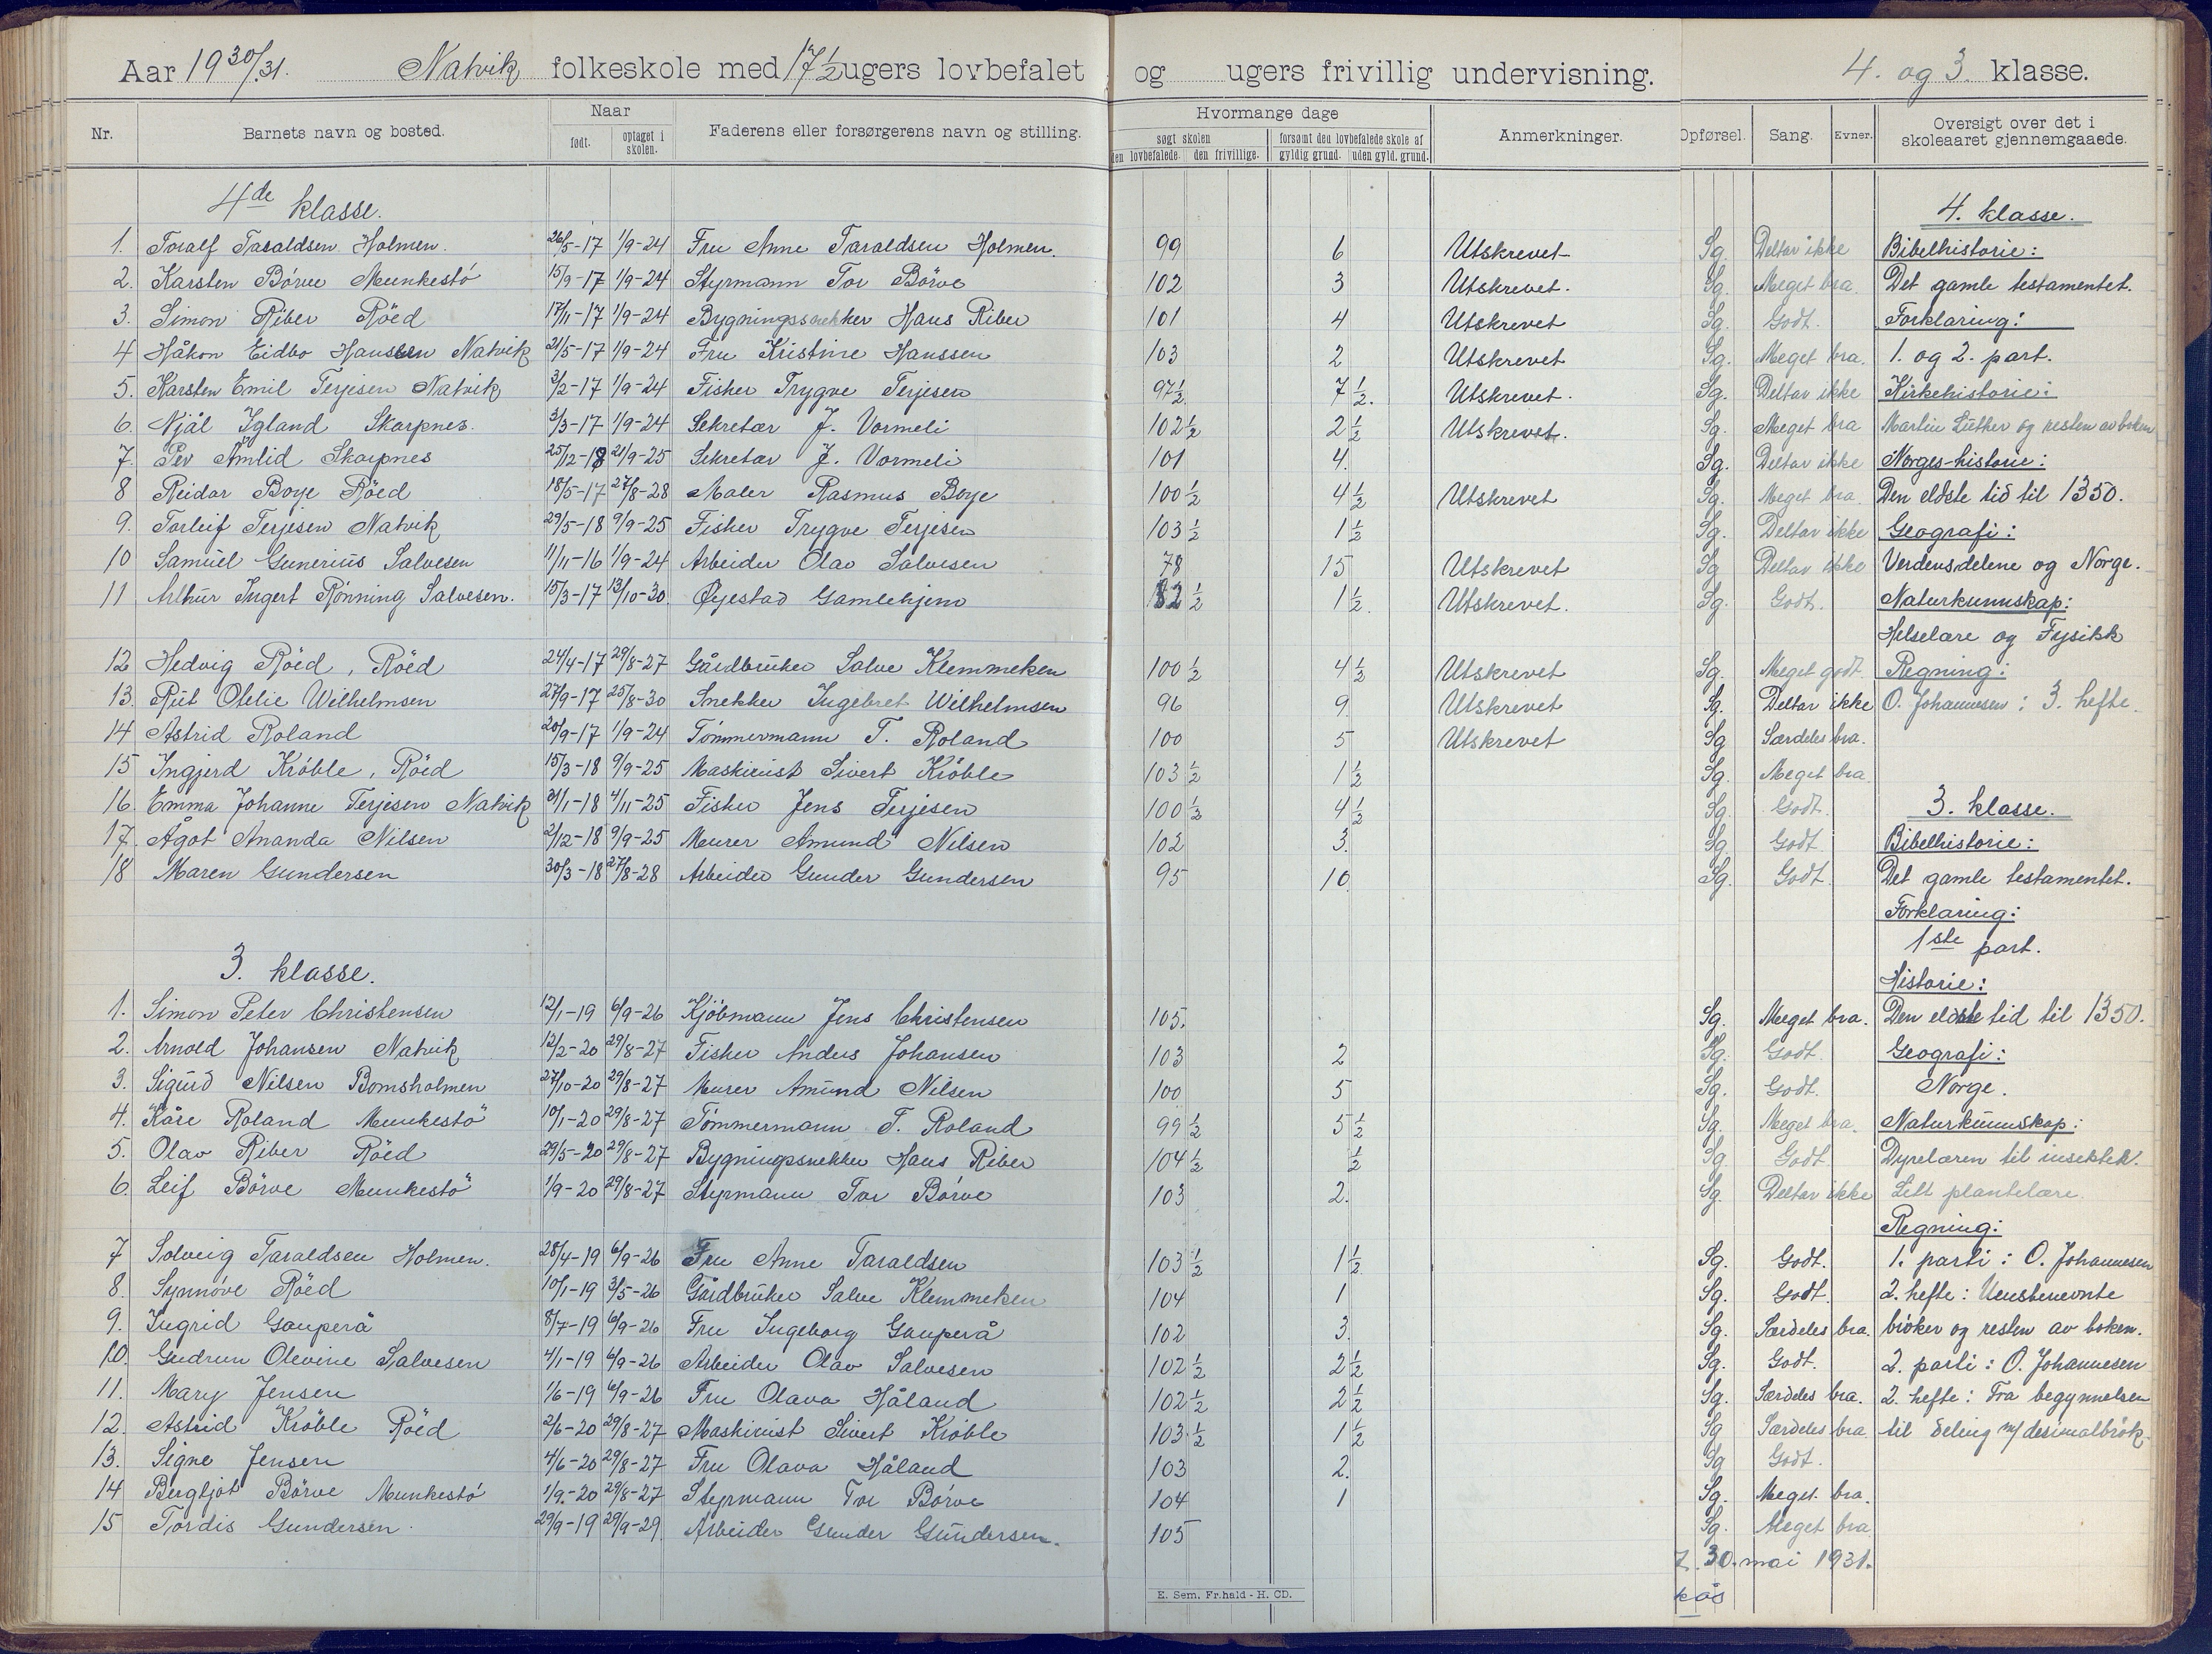 Aar 1930/31. Natvik folkeskole med 17 1/2 ugers lovbefalet og ugers frivillig undervisning. 4. og 3. klasse.
Nr. Barnets navn og bosted. Naar født. optaget i skolen. Faderens eller forsørgerens navn og stilling. Hvormange dage søgt skolen den lovbefalede. den frivillige. forsømt den lovbefalede skole af gyldig grund. uden gyld. grund. Anmerkninger. Opførsel. Sang. Evner. Oversigt over det i skoleaaret gjennemgaaede.
4de klasse. 4. klasse.
1. Toralf Taraldsen Holmen. 26/5-17 1/9-24 Fru Anne Taraldsen Holmen. 99 6 Utskrevet Sg. Deltar ikke Bibelhistorie:
2. Karsten Börve Munkestö 15/9-17 1/9-24 Styrmann Tor Börve 102 3 Utskrevet. Sg. Meget bra. Det gamle testamentet.
3. Simon Riber Röed 17/11-17 1/9-24 Bygningssnekker Hans Riber 101 4 Utskrevet Sg. Godt. Forklaring:
4 Håkon Eidbo Hanssen Natvik 21/5-17 1/9-24 Fru Kristine Hanssen 103 2 Utskrevet Sg. Meget bra. 1. og 2. part.
5. Karsten Emil Terjesen Natvik 3/2-17 1/9-24 Fisker Trygve Terjesen 97 1/2 7 1/2. Utskrevet. Sg. Deltar ikke Kirkehistorie:
6. Njål Igland Skarpnes. 3/3-17 1/9-24 Sekretær J. Vormeli 102 1/2 2 1/2 Utskrevet. Sg. Meget bra Martin Luther og resten av boken
7. Per Åmlid Skarpnes 25/12-18 21/9-25 Sekretær J. Vormeli 101 4. Sg. Deltar ikke Norges-historie:
8 Reidar Boye Röed 18/5-17 27/8-28 Maler Rasmus Boye 100 1/2 4 1/2 Utskrevet Sg. Meget bra. Den eldste tid til 1350.
9. Torleif Terjesen Natvik 29/5-18 9/9-25 Fisker Trygve Terjesen 103 1/2 1 1/2 Sg. Deltar ikke Geografi:
10 Samuel Gunerius Salvesen 1/11-16 1/9-24 Arbeider Olav Salvesen 78 15 Utskrevet Sg Deltar ikke Verdensdelene og Norge.
11 Arthur Ingert Rønning Salvesen. 15/3-17 13/10-30. Øyestad Gamlehjem 82 1/2 1 1/2. Utskrevet. Sg. Godt. Naturkunnskap:
Helselære og Fysikk
12 Hedvig Röed, Röed 24/4-17 29/8-27 Gårdbruker Salve Klemmeken 100 1/2 4 1/2 Utskrevet Sg. Meget godt. Regning:
13. Rut Otelie Wilhelmsen 27/9-17 25/8-30 Snekker Ingebret Wilhelmsen 96 9. Utskrevet Sg. Deltar ikke O. Johannesen: 3. hefte.
14 Astrid Roland 20/9-17 1/9-24 Tömmermann T. Roland 100 5 Utskrevet Sg Særdeles bra.
15 Ingjerd Kröble, Röed 15/3-18 9/9-25 Maskinist Sivert Kröble 103 1/2 1 1/2 Sg. Meget bra.
16. Emma Johanne Terjesen Natvik 31/1-18 4/11-25 Fisker Jens Terjesen 100 1/2 4 1/2 Sg. Godt. 3. klasse.
17. Ågot Amanda Nilsen 2/12-18 9/9-25 Murer Amund Nilsen 102 3. Sg. Godt. Bibelhistorie:
18 Maren Gundersen 30/3-18 27/8-28 Arbeider Gunder Gundersen 95 10. Sg. Godt. Det gamle testamentet.
Forklaring:
1ste part.
3. klasse. Historie:
1. Simon Peter Christensen 12/1-19 6/9-26 Kjöbmann Jens Christensen 105. Sg. Meget bra. Den eldste tid til 1350.
2. Arnold Johansen Natvik 12/2-20 29/8-27 Fisker Anders Johansen 103 2 Sg. Godt. Geografi:
3. Sigurd Nilsen Bomsholmen 27/10-20 29/8-27 Murer Amund Nilsen 100 5 Sg. Godt. Norge.
4. Kåre Roland Munkestö 10/1-20 29/8-27 Tömmermann T. Roland 99 1/2 5 1/2 Sg. Meget bra. Naturkunnskap:
5. Olav Riber Röed 29/5-20 29/8-27 Bygningssnekker Hans Riber 104 1/2 1/2 Sg. Godt Dyrelæren til insekter.
6. Leif Börve Munkestö 1/9-20 29/8-27 Styrmann Tor Börve 103 2. Sg. Deltar ikke Litt plantelære.
Regning:
7 Solveig Taraldsen Holmen. 28/4-19 6/9-26 Fru Anne Taraldsen 103 1/2 1 1/2 Sg. Godt. 1. parti: O. Johannesen
8. Synnöve Röed 10/1-19 3/5-26 Gårdbruker Salve Klemmeken 104 1 Sg. Godt. 2. hefte: Uensbenevnte
9. Ingrid Gauperå 8/7-19 6/9-26 Fru Ingeborg Gauperå 102 3. Sg. Særdeles bra. bröker og resten av boken.
10. Gudrun Olevine Salvesen 4/1-19 6/9-26 Arbeider Olav Salvesen 102 1/2 2 1/2 Sg. Godt. 2. parti: O. Johannesen
11. Mary Jensen 1/6-19 6/9-26 Fru Olava Håland 102 1/2 2 1/2 Sg. Særdeles bra. 2. hefte: Fra begynnelsen
12. Astrid Kröble Röed 2/6-20 29/8-27 Maskinist Sivert Kröble 103 1/2 1 1/2 Sg Særdeles bra til deling m/ desimalbrök.
13. Signe Jensen 4/6-20 29/8-27 Fru Olava Håland 103 2. Sg Godt.
14 Bergljot Börve Munkestö 1/9-20 29/8-27 Styrmann Tor Börve 104 1 Sg. Meget bra.
15 Tordis Gundersen. 29/9-19 29/9-29. Arbeider Gunder Gundersen. 105 Sg. Meget bra
30. mai 1931.
E. Sem, Fr.hald - H. CD.